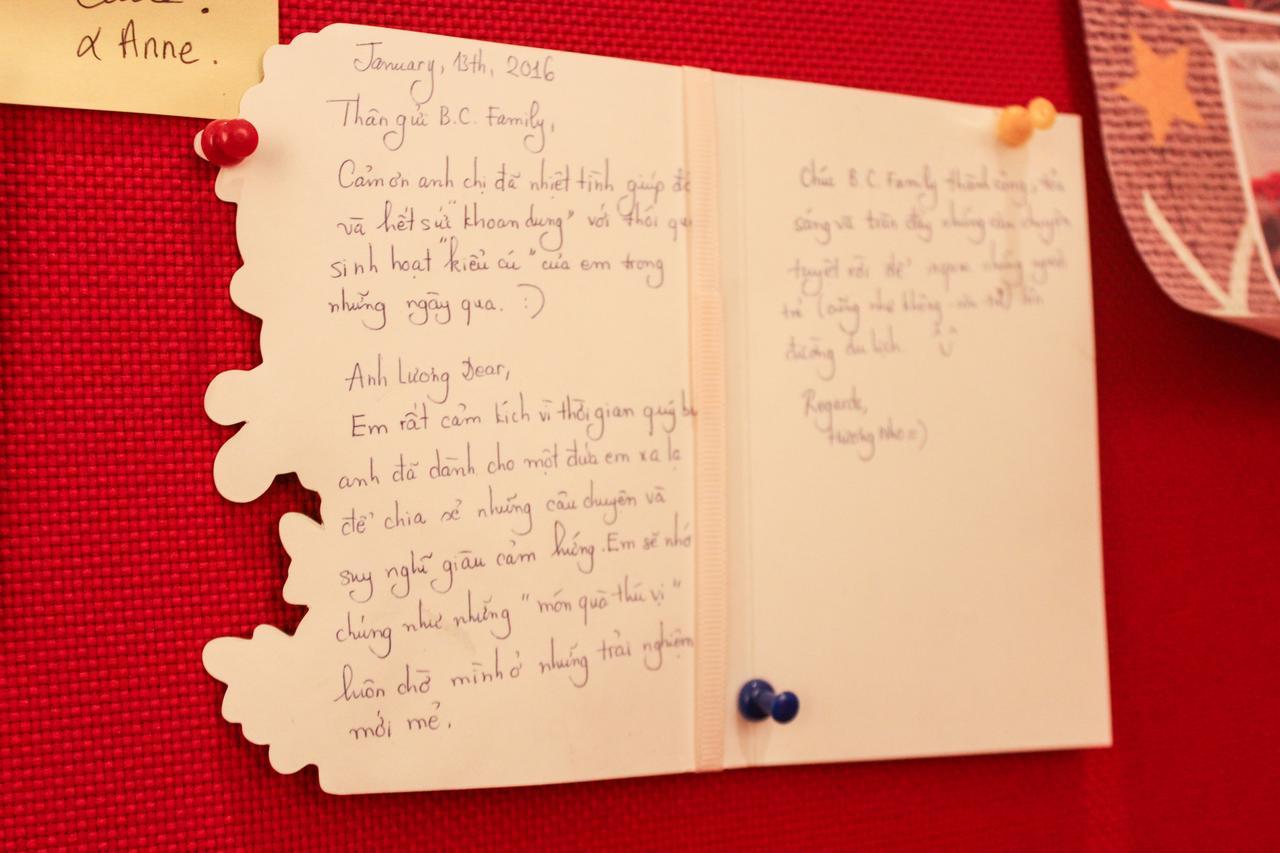 & Anne.
January, 13th, 2016
Thân gửi B.C. Family,
Cảm ơn anh chị đã nhiệt tình giúp đỡ
và hết sức "khoan dung" với thói
sinh hoạt "kiểu cú" của em trong
những ngày qua. :)
Anh Lương Dear,
Em rất cảm kích vì thời gian quý
anh đã dành cho một đứa em xa lạ
để chia sẻ những câu chuyện và
suy nghĩ giàu cảm hứng. Em sẽ nhớ
chúng như những "món quà thú vị"
luôn chờ mình ở những trải nghiệm
mới mẻ.
Chúc B.C. Family thành công, tỏa
sáng và tràn đầy những câu chuyện
tuyệt vời để những người
trẻ (cũng như không còn trẻ) lên
đường du lịch
Regards,